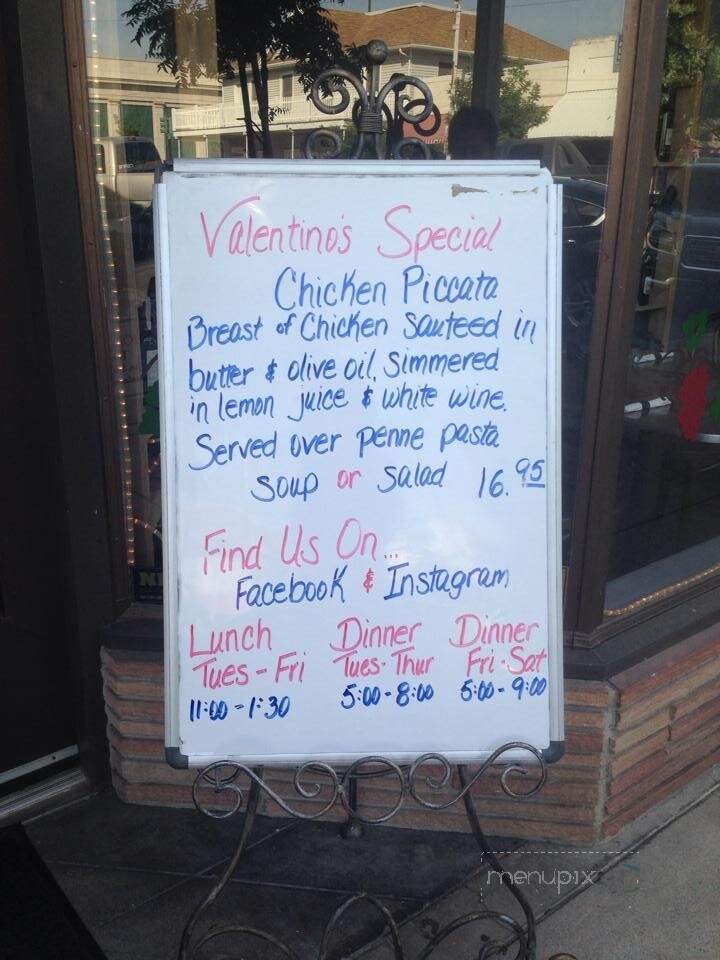 Valentino's Special
Chicken Piccata
Breast of Chicken Sauteed in
butter & olive oil. Simmered
in lemon juice & white wine.
Served over penne pasta
Soup or Salad 16.95
Find Us On...
Facebook & Instagram
Lunch Dinner Dinner
Tues-Fri Tues-Thur Fri-Sat
11:00-1:30 5:00-8:00 5:00-9:00
menupix